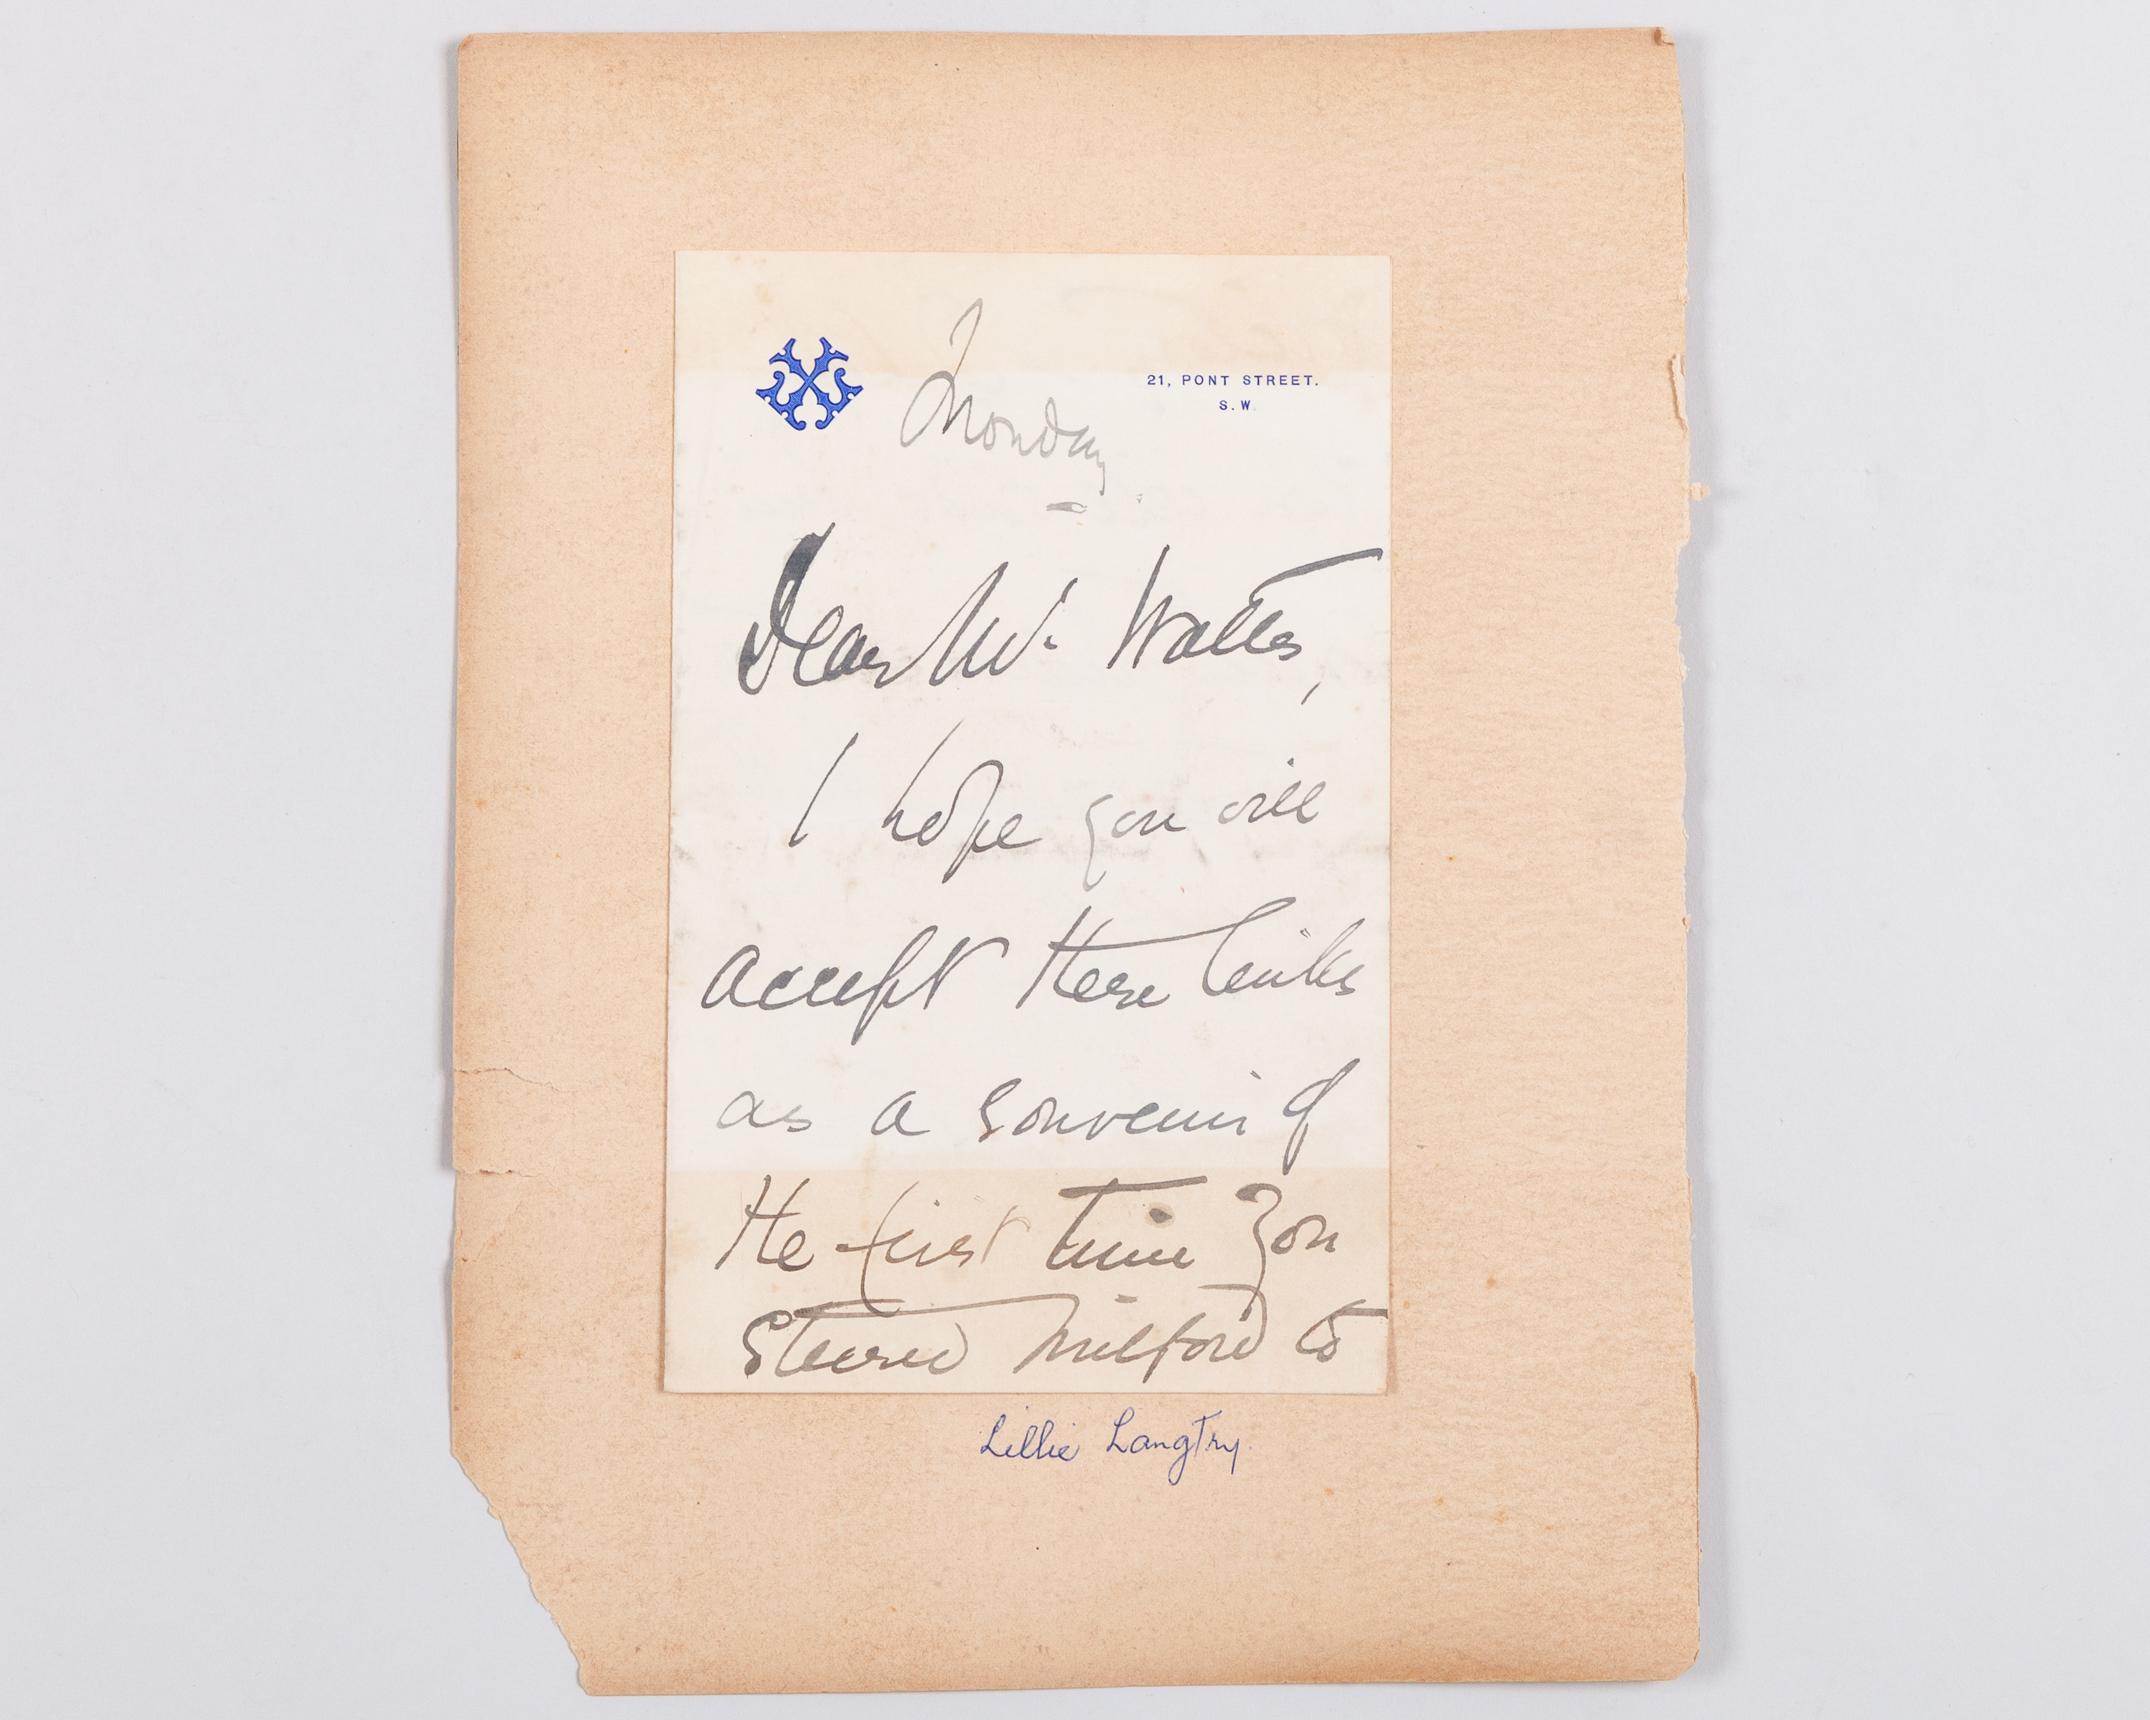 Monday
21, PONT STREET.
S.W.
Dear Mr. Watts,
I hope you will
accept these links
as a souvenir of
the first time you
steered Milford to
Lillie Langtry.